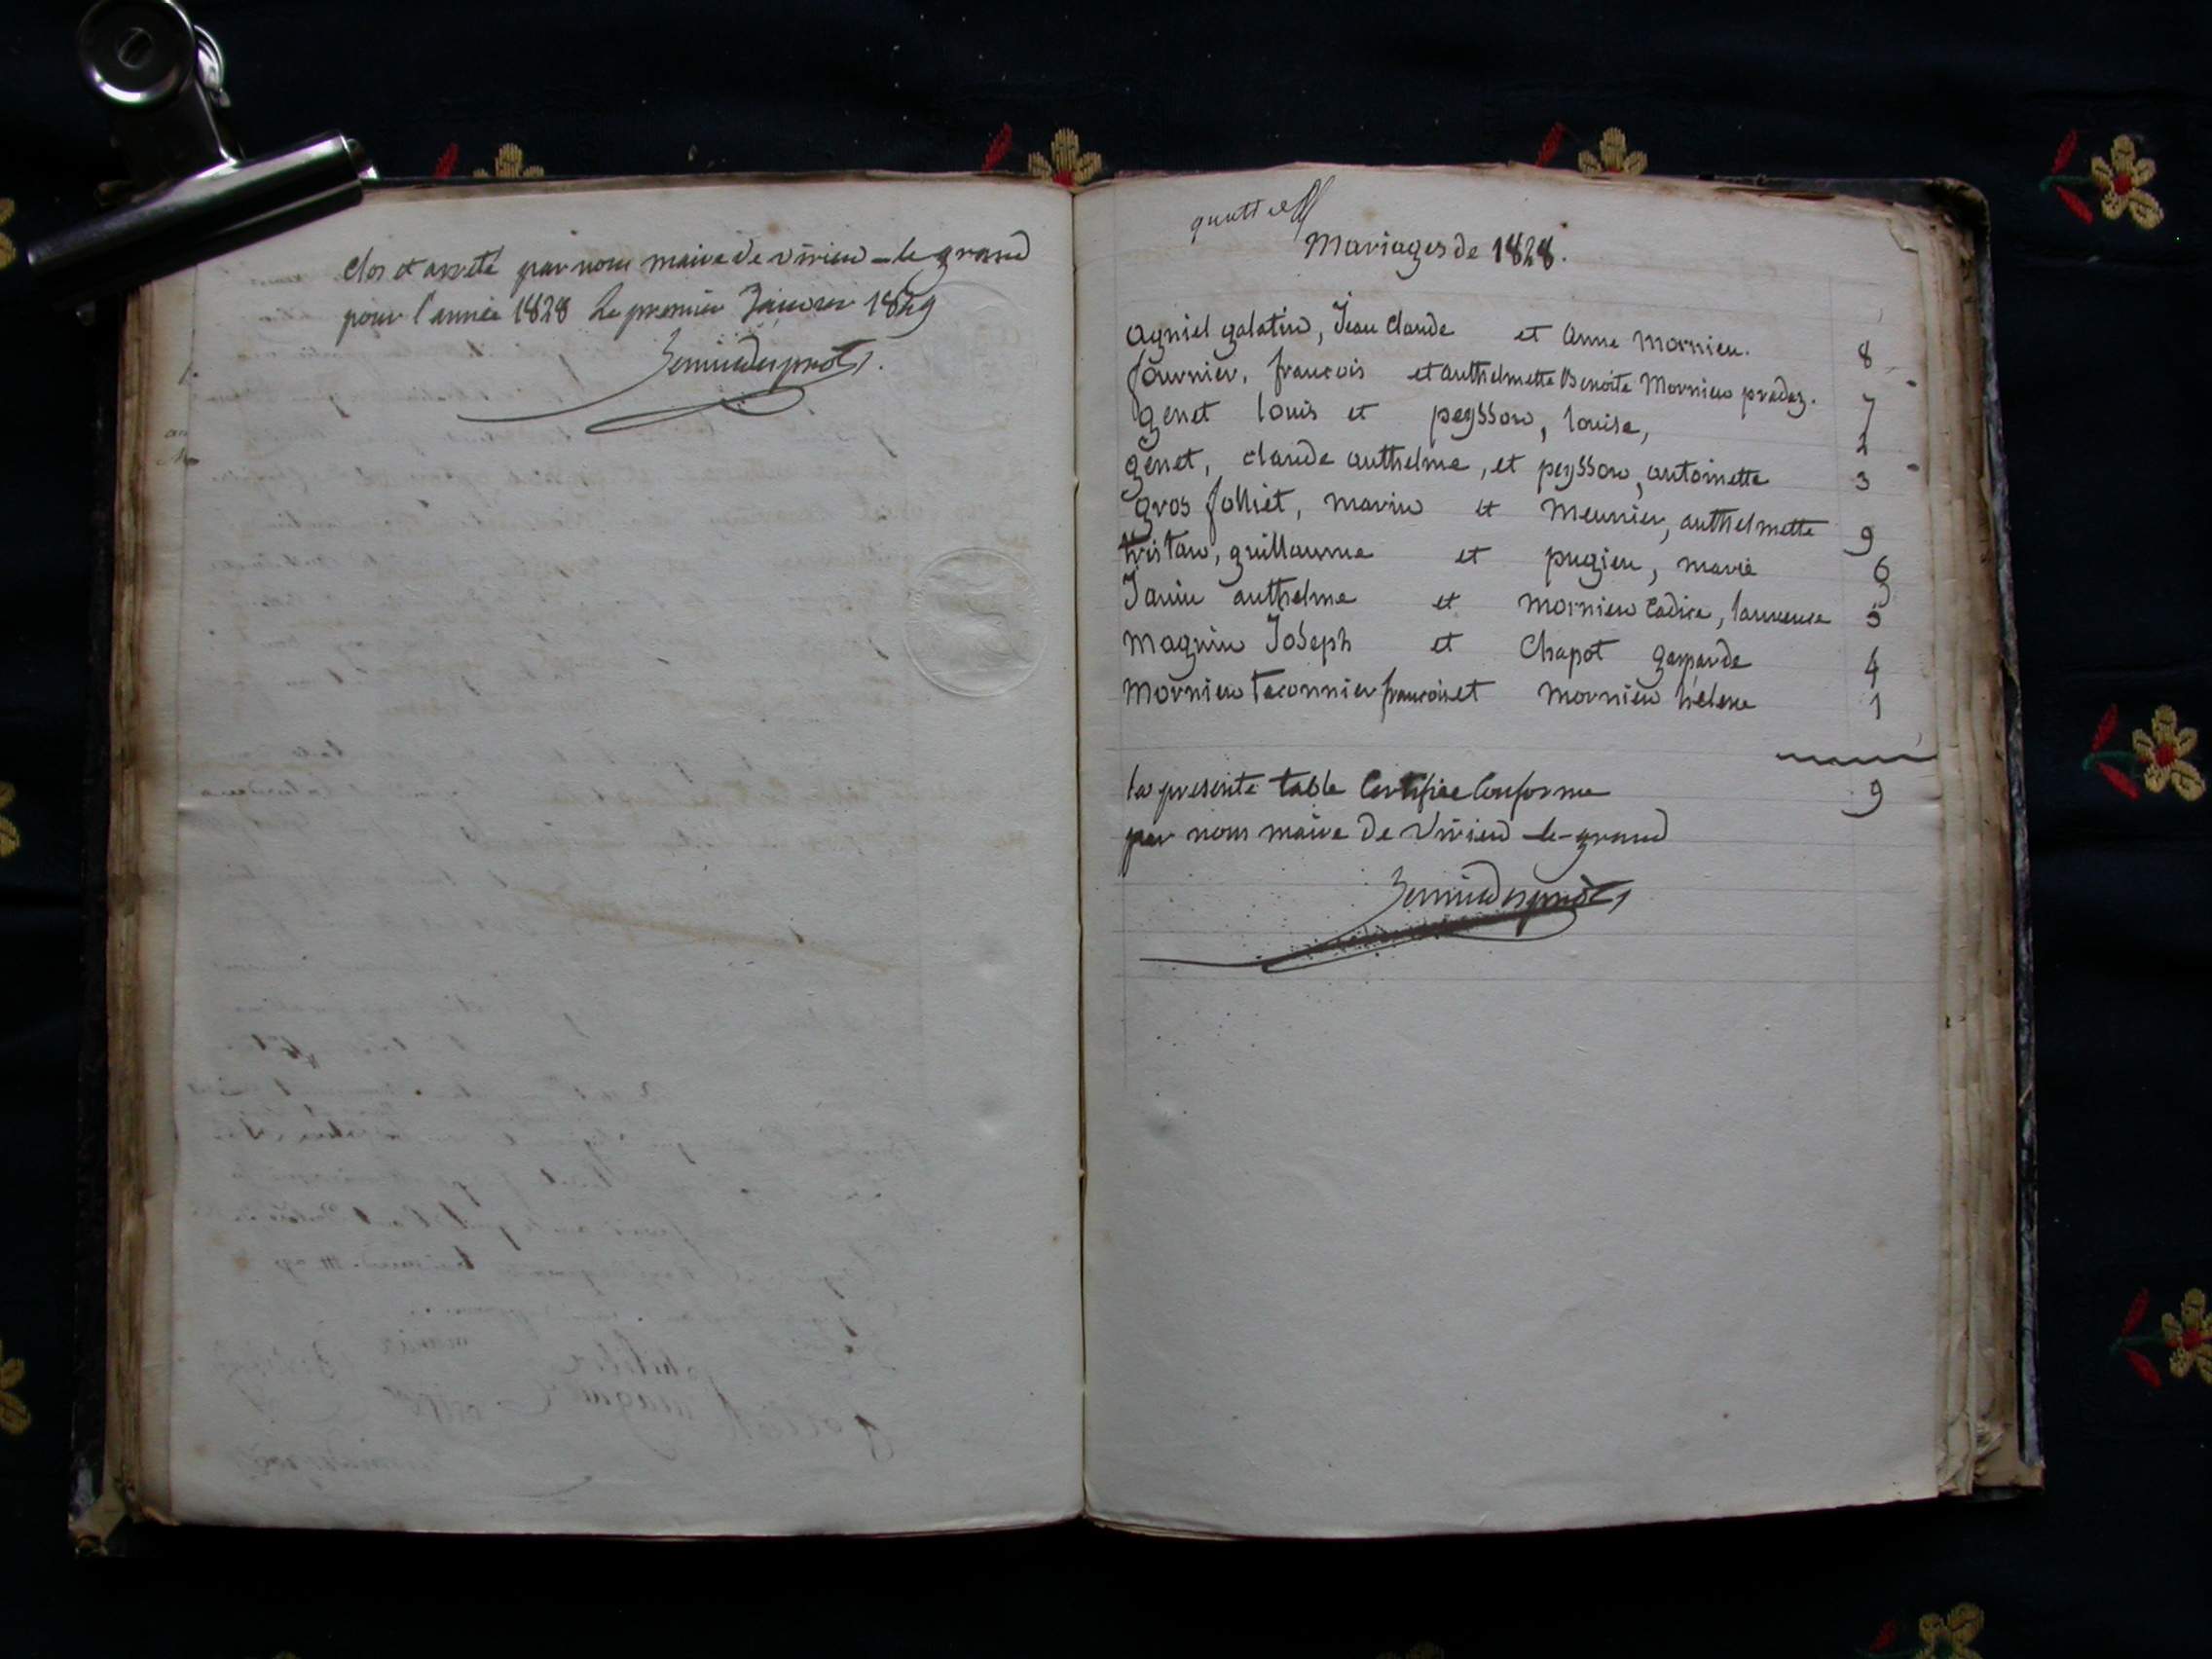 Clos et arreté par nous maire de virieu-le-grand
pour l'année 1828 le premier Janvier 1829
quatre
Mariages de 1828.
agniel galatin, Jean Claude et Anne Mornieu. 8
fournier, francois et anthelmette Benoite Mornieu pradaz. 7
genet louis et peysson, louise, 2
genet, claude anthelme, et peysson, antoinette 3
gros jolliet, marin et meunier, anthelmette 9
tristan, guillaume et pugieu, marie 6
Janin anthelme et mornieu Cadice, laurence 5
magnin Joseph et Chapot gasparde 4
mornieu taconnier francois et mornieu hélène 1
la presente table Certifiée Conforme 9
par nous maire de Virieu-le-grand